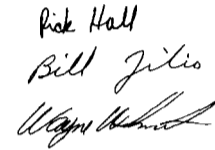 Rick Hall
Bill Zilio
Wayne